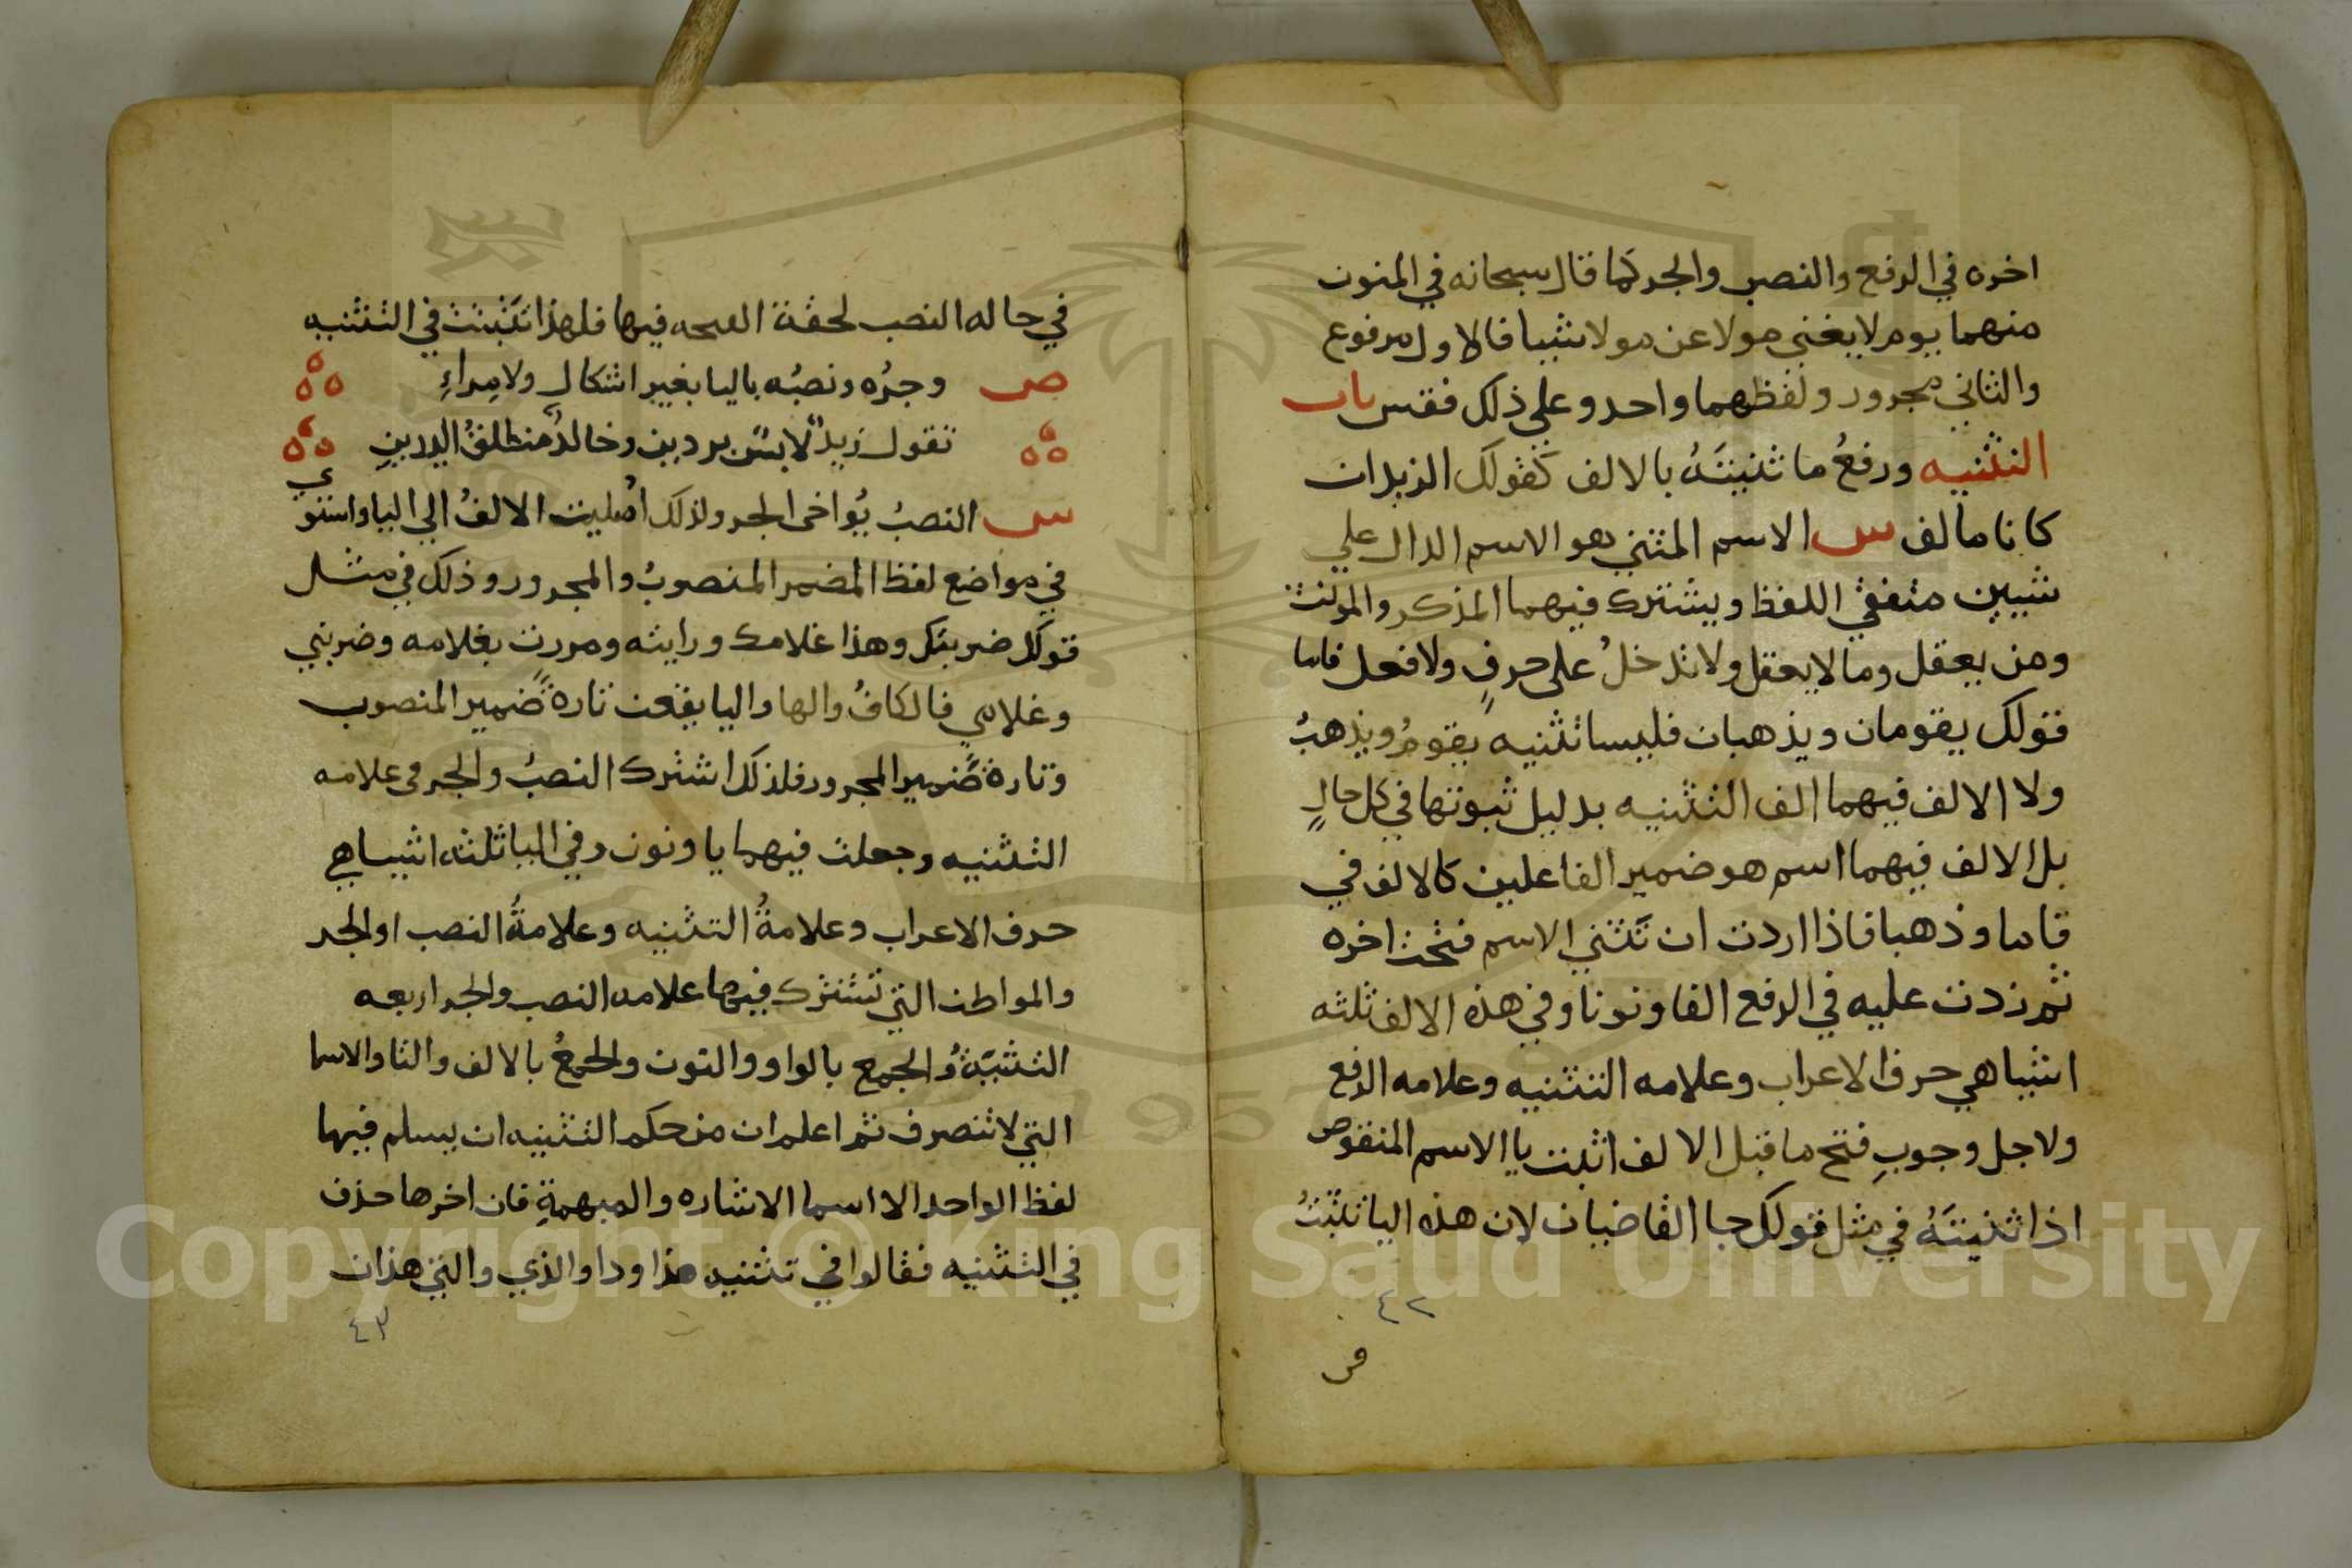 اخره في الرفع والنصب والجر كما قال سبحانه في المنون
منهما يوم لا يغني مولا عن مولا شيا فالاول مرفوع
والثاني مجرور ولفظهما واحد وعلى ذلك فقس باب
التثنيه ورفعُ ما ثنيتَهُ بالالف كقولك الزيدان
كانا مالف س الاسم المثني هو الاسم الدال علي
شيين متفقي اللفظ ويشترك فيهما المذكر والمونث
ومن يعقل وما لا يعقل ولا تدخلُ على حرفٍ ولا فعل فاما
قولك يقومان ويذهبان فليسا تثنيه يقومُ ويذهبُ
ولا الالف فيهما الف التثنيه بدليل ثبوتها في كل حالٍ
بل الالف فيهما اسم هو ضمير الفاعلين كالالف في
قاما وذهبا فاذا اردت ان تَثني الاسم فتحت اخره
ثم زدت عليه في الرفع الفا ونونا وفي هذه الالف ثلثه
اشيا هي حرف الاعراب وعلامه التثنيه وعلامه الرفع
ولاجل وجوبِ فتح ما قبل الالف اثبت يا الاسم المنقوص
اذا ثنيتَهُ في مثل قولك جا القاضيان لان هذه اليا تثبتُ
٤٢
في حاله النصب لحقة الفتحه فيها فلهذا تثبتت في التثنيه
ص وجرُه ونصبُه باليا بغير اشكال ولا مِراءِ
تقول زيدٌ لابسٌ بردين وخالدٌ منطلقُ اليدينِ
س النصبُ يُواخى الجر ولذلك امليت الالفُ الي اليا واستوي
في مواضع لفظ المضمر المنصوبُ والمجرور وذلك في مثل
قولك ضربتك وهذا غلامك ورايته ومررت بغلامه وضربني
وغلامي فالكافُ والها واليا يقعن تارةً ضمير المنصوب
وتارةً ضَمير المجرور فلذلك اشترك النصبُ والجر في علامه
التثنيه وجعلت فيهما يا ونون وفي اليا ثلثه اشيا هي
حرف الاعراب وعلامةُ التثنيه وعلامةُ النصب او الجر
والمواطن التي تشترك فيها علامه النصب والجر اربعه
التثنيَةُ والجمع بالواو والنون والجمعُ بالالف والتا والاسما
التي لا تنصرف ثم اعلم ان من حكم التثنيه ان يسلم فيها
لفظ الواحد الا اسما الاشاره والمبهمةِ فان اخرها حذف
في التثنيه فقالوا في تثنيه هذا وذا والذي والتي هذان
٤٣
Copyright © King Saud University
1957